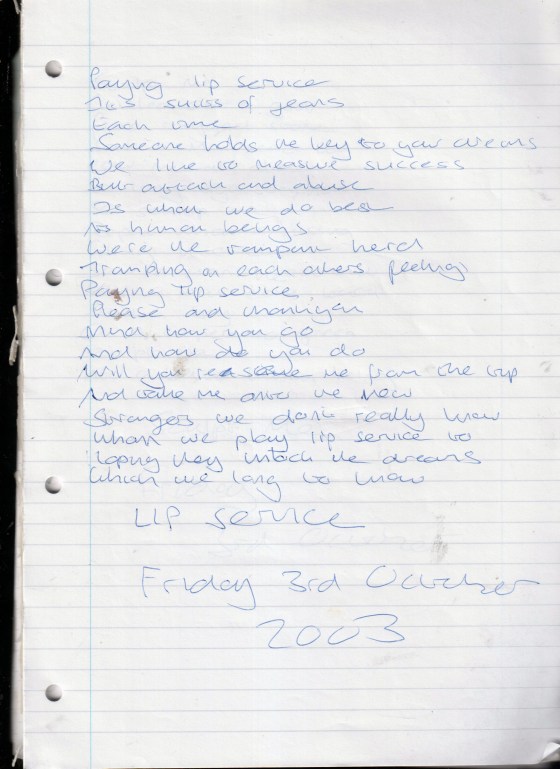 Paying lip service
of years
Each time
Someone holds the key to your dreams
We like to measure success
But attack and abuse
Is what we do best
As human beings
We're the rampant herd
Tramping on each others feelings
Paying lip service
Please and thankyou
Mind how you go
And how do you do
Will you me from the
And take me onto the new
Strangers we dont really know
Whom we play lip service to
Hoping they unlock the dreams
Which we long to know
LIP service
Friday 3rd October
2003